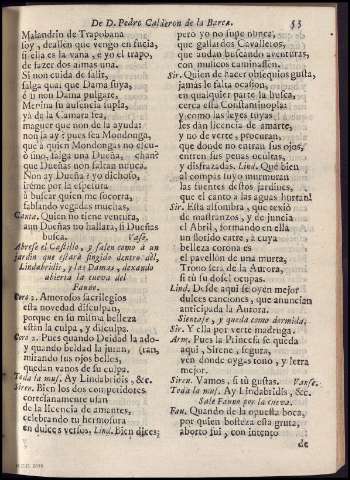 De D. Pedro Calderon de la Barca. 53
Malandrin de Trapobana
soy, deallen que vengo en sucia,
si ella es la vana, e yo el trapo,
de fazer dos aimas una.
Si non cuida de salir,
salga quai que Dama suya,
è ù non Dama pulgare,
Menina su ausencia supla,
yà de la Camara sea,
maguer que non de la ayuda:
non la ay? pues sea Mondonga,
que à quien Mondongas no escu-
ò uno, salga una Dueña, chan?
que Dueñas non faltan nunca.
Non ay Dueña? yo dichoso,
irème por la espesura
à buscar quien me socorra,
fablando vegadas muchas,
Canta. Quien no tiene ventura,
aun Dueñas no hallarà, si Dueñas
busca. Vase.
Abrese el Castillo, y salen como à un
jardin que estarà fingido dentro dèl,
Lindabridis, y las Damas, dexando
abierta la cueva del
Fauno.
Coro 1. Amorosos sacrilegios
esta novedad disculpen,
porque en su misma belleza
estàn la culpa, y disculpa.
Coro 2. Pues quando Deidad la ado-
y quando beldad la juran, (ran,
mirando sus ojos bellos,
quedan vanos de su culpa.
Toda la mus. Ay Lindabridis, &c.
Siren. Bien los dos competidores
cortesanamente usan
de la licencia de amantes,
celebrando tu hermosura
en dulces versos. Lind. Bien dices;
pero yo no supe nunca,
que gallardos Cavalleros,
que andan buscando aventuras,
con musicos caminassen.
Sir. Quien de hacer obsequios gusta,
jamàs le falta ocasion,
en qualquier parte la busca,
cerca està Constantinopla:
y como las leyes tuyas
les dàn licencia de amarte,
y no de verte, procuran,
que donde no entran sus ojos,
entren sus penas ocultas,
y disfrazadas. Lind. Què bien
al compàs tuyo murmuran
las fuentes destos jardines,
que el canto a las aguas hurtan!
Sir. Esta alfombra, que texiò
de mastranzos, y de juncia
el Abril, formando en ella
un florido catre, à cuya
belleza corona es
el pavellon de una murta,
Trono serà de la Aurora,
si tù su dosel ocupas.
Lind. Desde aqui se oyen mejor
dulces canciones, que anuncian
anticipada la Aurora.
Sientase, y queda como dormida.
Sir. Y ella por verte madruga.
Arm. Pues la Princesa se queda
aqui, Sirene, segura,
ven donde oygas tono, y letra
mejor.
Siren. Vamos, si tù gustas. Vanse.
Toda la mus. Ay Lindabridis, &c.
Sale Fauno por la cueva.
Fau. Quando de la opuesta boca,
por quien bosteza esta gruta,
aborto fui, con intento
de